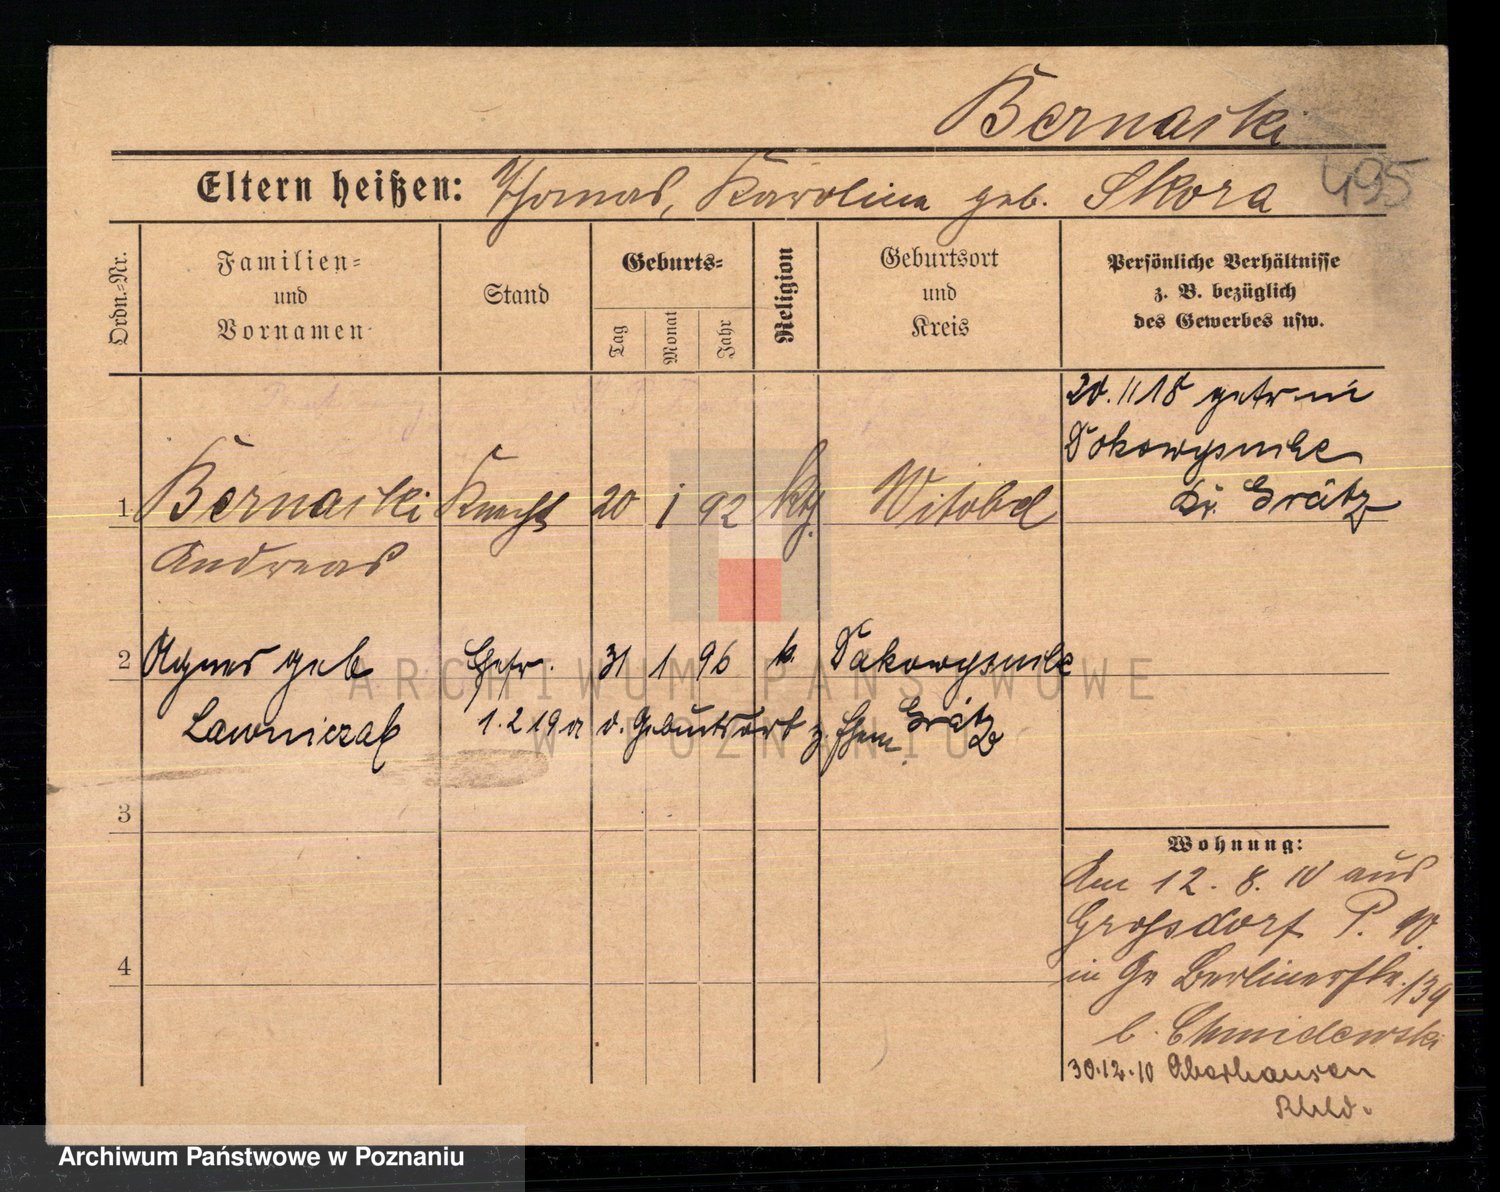 Bernaski
Eltern heißen: Thomas, Karolina geb. Skora
495
Ordn.-Nr.
Familien-
und
Vornamen
Stand
Geburts-
Tag
Monat
Jahr
Religion
Geburtsort
und
Kreis
Persönliche Verhältnisse
z. B. bezüglich
des Gewerbes usw.
20. 11 18 getr in
Dakowymokre
Kr. Grätz
1 Bernaski Knecht 20 1 92 kth. Witobel
Andreas
2 Agnes geb Ehefr. 31 1 96 k. Dakowymokre
Lawniczak 1. 2 19 a d. Geburtsort z. Ehem. Grätz
3
4
Wohnung:
Am 12. 8. 10 aus
Großdorf P. W.
in Gr Berlinerstr. 139
b. Chmielewski
30.12.10 Oberhausen
Rhld.
ARCHIWUM PAŃSTWOWE
W POZNANIU
Archiwum Państwowe w Poznaniu